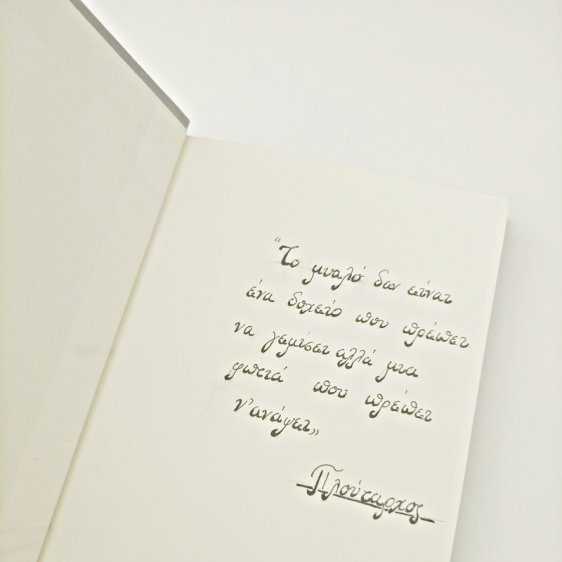 “Το μυαλό δεν είναι
ένα δοχείο που πρέπει
να γεμίσει αλλά μια
φωτιά που πρέπει
ν'ανάψει»
Πλούταρχος